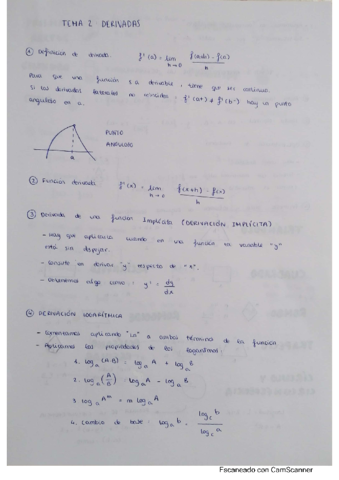 TEMA 2: DERIVADAS
① Definición de derivada. f'(a) = lim h→0 f(a+h) - f(a) / h
Para que una función sea derivable, tiene que ser continua.
Si las derivadas laterales no coinciden: f'(a⁺) ≠ f'(a⁻) hay un punto
anguloso en a.
PUNTO
ANGULOSO
a
② Función derivada f'(x) = lim h→0 f(x+h) - f(x) / h
③ Derivada de una función implícita (DERIVACIÓN IMPLÍCITA)
- Hay que aplicarlo cuando en una función la variable "y"
está sin despejar.
- Consiste en derivar "y" respecto de "x".
- Obtenemos algo como: y' = dy/dx
④ DERIVACIÓN LOGARÍTMICA
- Comenzamos aplicando "Ln" a ambos términos de la función
- Aplicamos las propiedades de los logaritmos:
1. logₐ (A·B) = logₐ A + logₐ B
2. logₐ (A/B) = logₐ A - logₐ B
3. logₐ Aᵐ = m logₐ A
4. Cambio de base: logₐ b = log_c b / log_c a
Escaneado con CamScanner